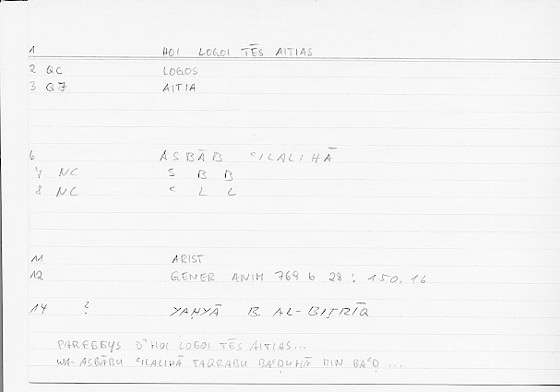 1 HOI LOGOI TĒS AITIAS
2 QC LOGOS
3 Q7 AITIA
6 ASBĀB ʿILALIHĀ
7 NC S B B
8 NC ʿ L L
11 ARIST
12 GENER ANIM 769 b 28 : 150.16
14 ? YAḤYĀ B. AL-BIṬRĪQ
PAREGGYS D' HOI LOGOI TĒS AITIAS...
WA-ASBĀBU ʿILALIHĀ TAQRABU BAʿḌUHĀ DIN BAʿḌ ...